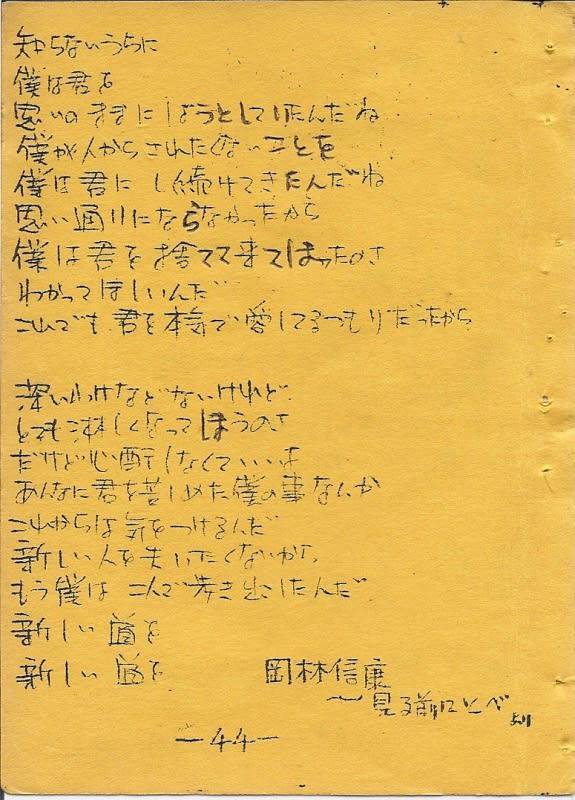 知らないうちに
僕は君を
思いのままにしようとしていたんだね
僕が人からされたくないことを
僕は君にし続けてきたんだね
思い通りにならなかったから
僕は君を捨てて来てしまったのさ
わかってほしいんだ
これでも君を本気で愛してるつもりだったから
深いわけなどないけれど
とても淋しくなってしまうのさ
だけど心配しなくていいよ
あんなに君を苦しめた僕の事なんか
これからは気をつけるんだ
新しい人を失いたくないから
もう僕は二人で歩き出したんだ
新しい道を
新しい道を
岡林信康
〜見る前にとべより
－44－